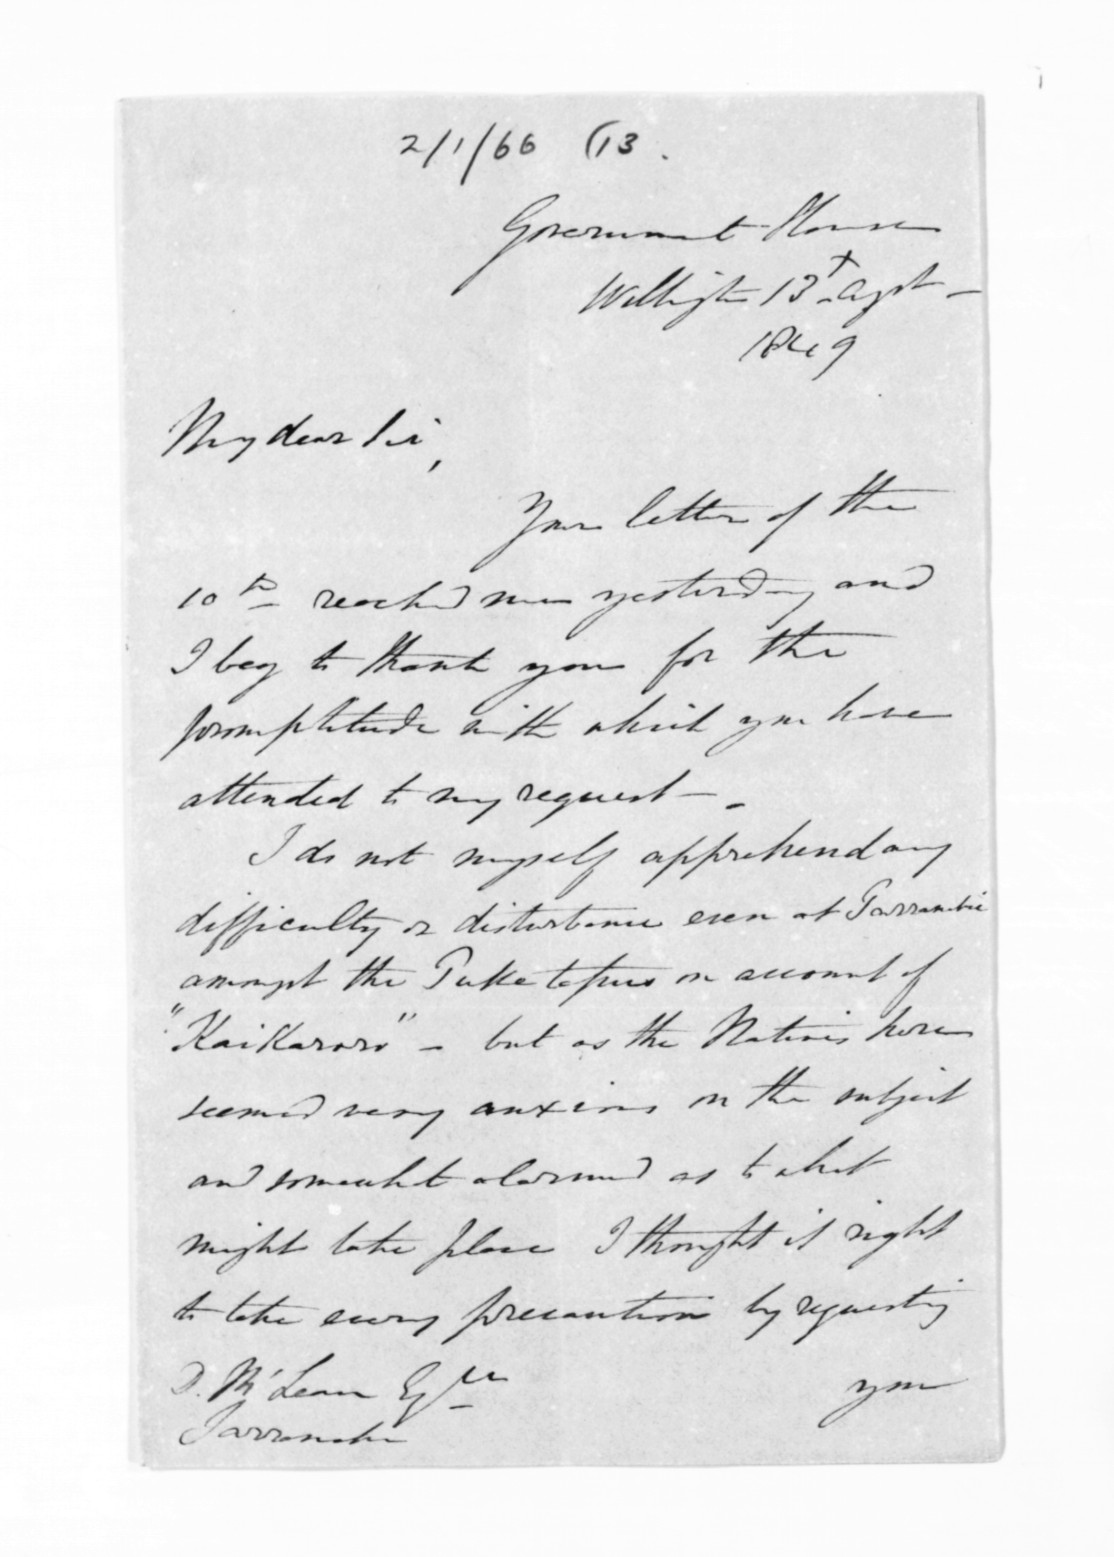 2/1/66 (13.
Government House
Wellington 13th Augst
1849
My dear Sir,
Your letter of the
10th reached me yesterday and
I beg to thank you for the
promptitude with which you have
attended to my request.
I do not myself apprehend any
difficulty or disturbance even at Tarranakie
amongst the Puketapus on account of
"Kaikararo" - but as the Natives here
seemed very anxious on the subject
and somewhat alarmed as to what
might take place I thought it right
to take every precaution by requesting
D. McLean Esqre
Tarranakie
you